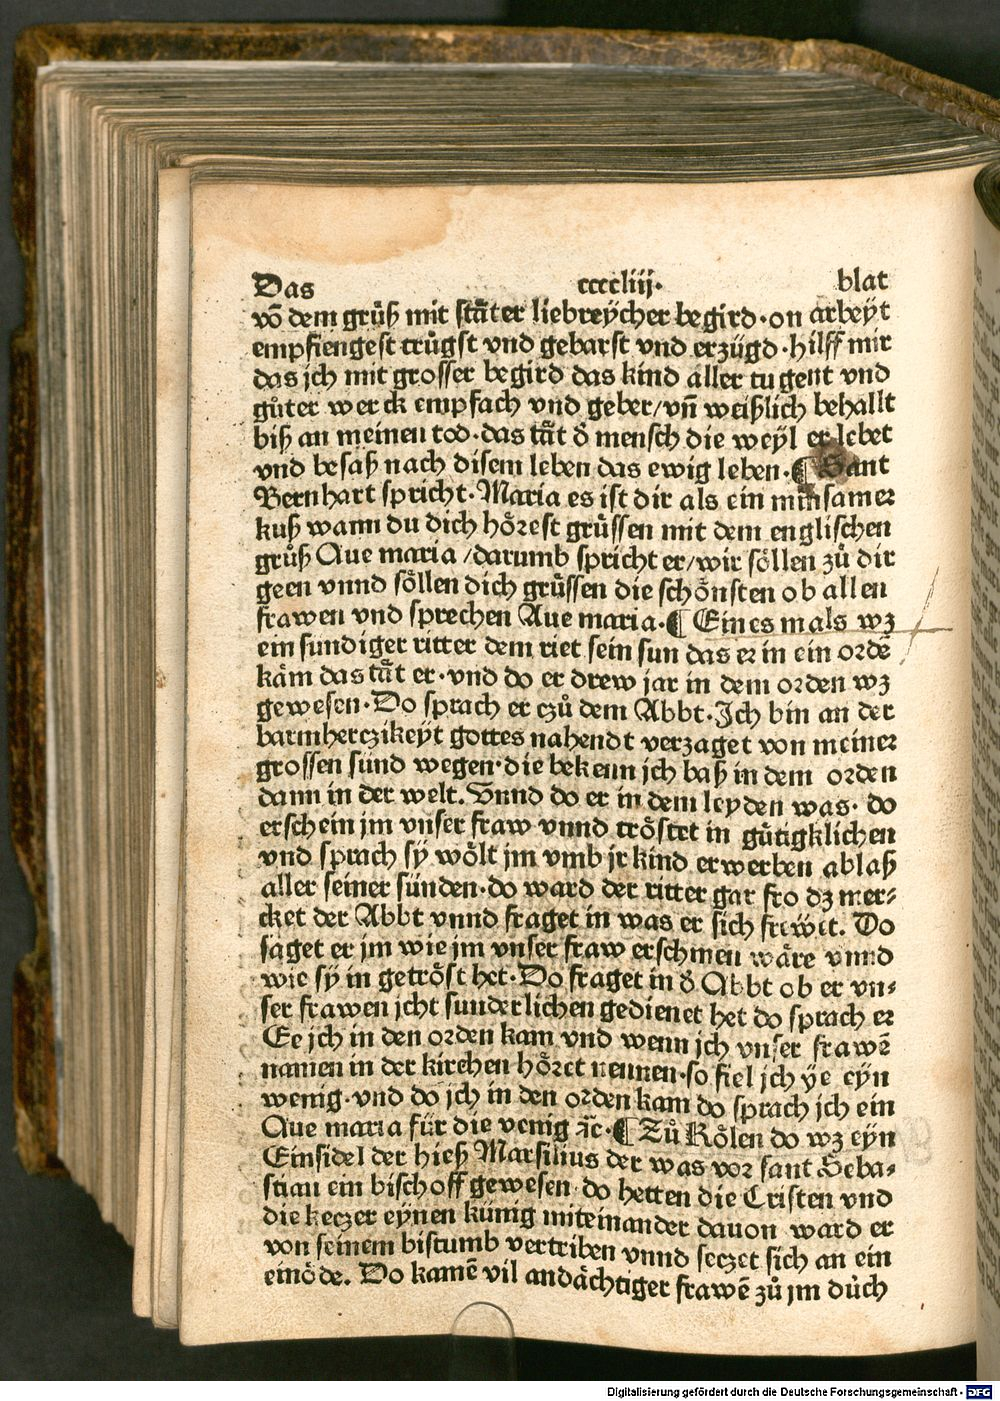 Das ccccliij. blat
vō dem grůß mit stäter liebreÿcher begird·on arbeÿt
empfiengest trůgst vnd gebarst vnd erzügd·hilff mir
das jch mit grosser begird das kind aller tugent vnd
gůter werck empfach vnd geber/vn̄ weißlich behallt
biß an meinen tod·das tät d̕ mensch die weÿl er lebet
vnd besaß nach disem leben das ewig leben·¶Sant
Bernhart spricht·Maria es ist dir als ein minsamer
kuß wann du dich hörest grüssen mit dem englischen
grůß Aue maria/darumb spricht er/wir söllen zů dir
geen vnnd söllen dich grüssen die schönsten ob allen
frawen vnd sprechen Aue maria·¶Eines mals wz
ein sundiger ritter dem riet sein sun das er in ein ordē
käm das tät er·vnd do er drew jar in dem orden wz
gewesen·Do sprach er czů dem Abbt·Jch bin an der
barmherczikeÿt gottes nahendt verzaget von meiner
grossen sünd wegen·die bekenn jch baß in dem orden
dann in der welt. Vnnd do er in dem leyden was· do
erschein jm vnser fraw vnnd tröstet in gůtigklichen
vnd sprach sÿ wölt jm vmb jr kind erwerben ablaß
aller seiner sünden·do ward der ritter gar fro dz mer⸗
cket der Abbt vnnd fraget in was er sich frewet. Do
saget er jm wie jm vnser fraw erschinen wäre vnnd
wie sÿ in getröst het·Do fraget in d̕ Abbt ob er vn⸗
ser frawen jcht sunderlichen gedienet het do sprach er
Ee jch in den orden kam vnd wenn jch vnser frawē
namen in der kirchen höret nennen·so fiel jch ÿe eyn
wenig·vnd do jch in den orden kam do sprach jch ein
Aue maria für die venig ⁊c̄·¶Zů Kölen do wz eyn
Einsidel der hieß Marsilius der was vor sant Seba⸗
stian ein bischoff gewesen·do hetten die Cristen vnd
die keczer eynen künig miteinander dauon ward er
von seinem bistumb vertriben vnnd seczet sich an ein
einöde. Do kamē vil andächtiger frawē zů jm důch
Digitalisierung gefördert durch die Deutsche Forschungsgemeinschaft - DFG